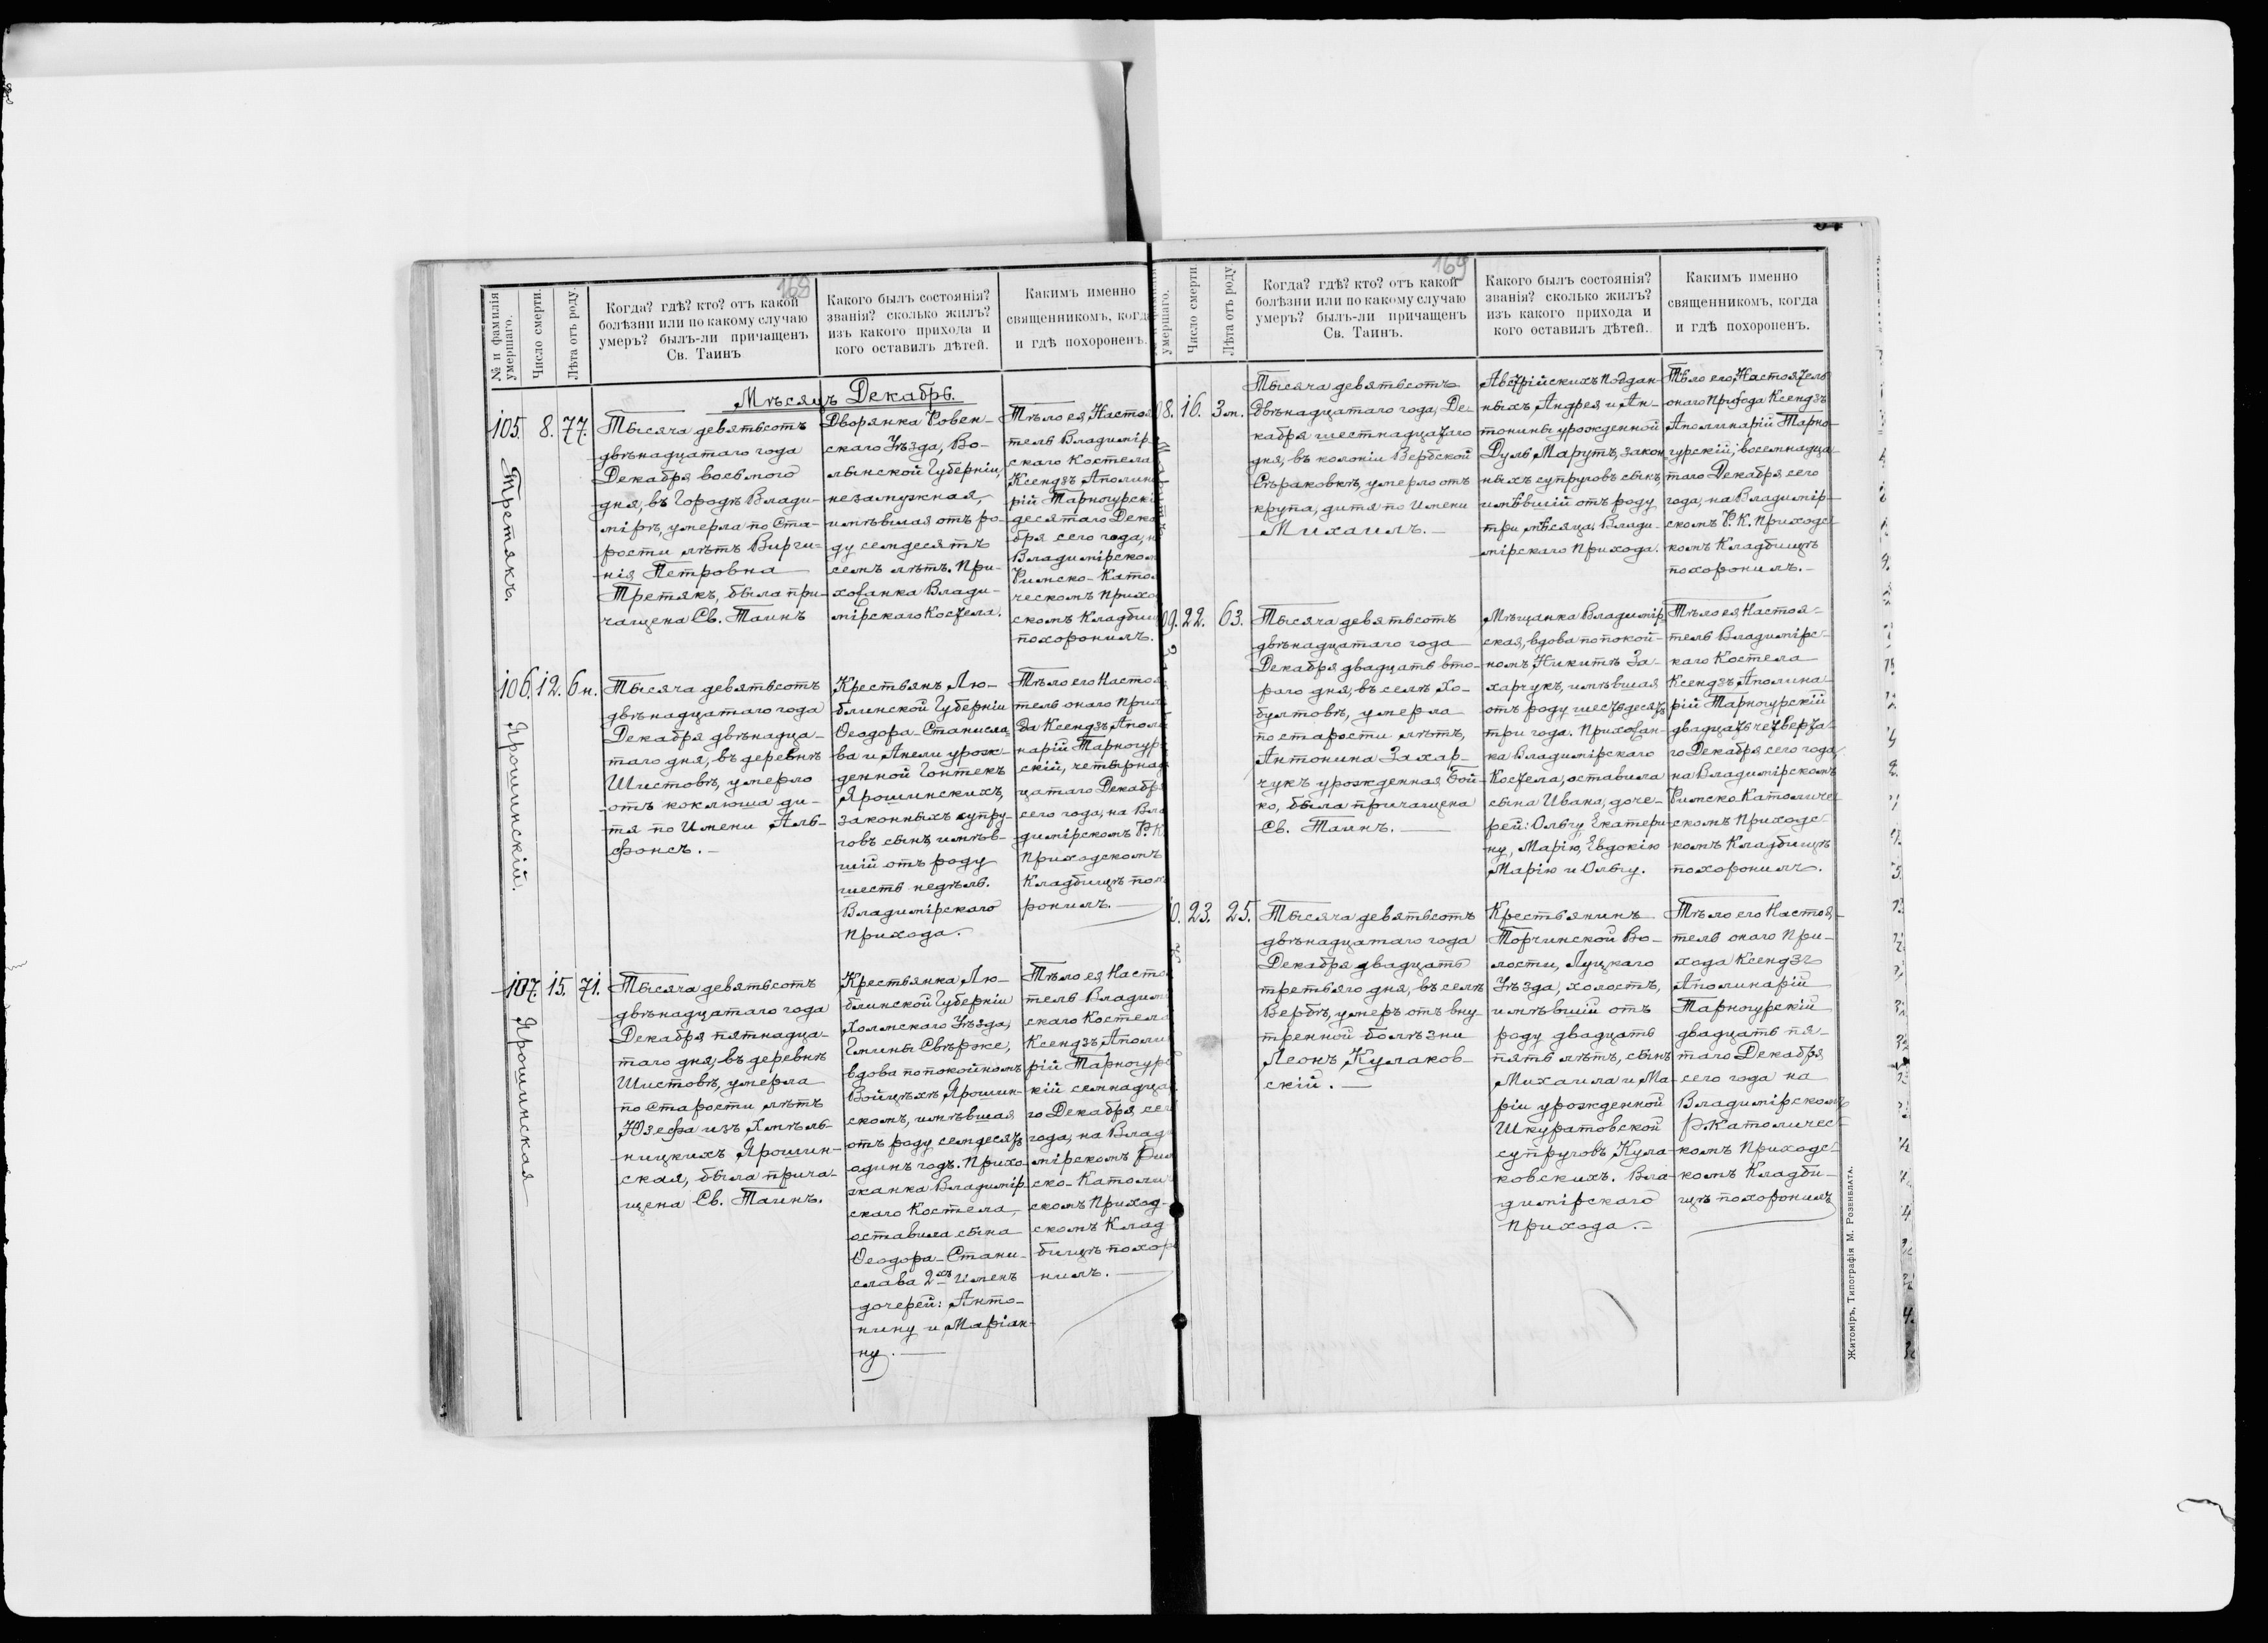 168
№ и фамилія умершаго.
Число смерти.
Лѣта отъ роду.
Когда? гдѣ? кто? отъ какой
болѣзни или по какому случаю
умеръ? былъ-ли причащенъ
Св. Таинъ
Какого былъ состоянія?
званія? сколько жилъ?
изъ какого прихода и
кого оставилъ дѣтей.
Какимъ именно
священникомъ, когд
и гдѣ похороненъ.
Мѣсяцъ Декабрь.
105.
Третякъ.
8.
77.
Тысяча девятьсотъ
двѣнадцатаго года
Декабря восьмого
дня, въ Городѣ Влади-
мірѣ, умерла по Ста-
рости лѣтъ Вирги-
нія Петровна
Третякъ, была при-
чащена Св. Таинъ
Дворянка Ровен-
скаго Уѣзда, Во-
лынской Губерніи,
незамужная,
имѣвшая отъ ро-
ду семдесятъ
семь лѣтъ. При-
хожанка Влади-
мірскаго Костела.
Тѣло ея, Настоя
тель Владимір-
скаго Костела
Ксендзъ Аполин
рій Тарногурскі
десятаго Дека
бря сего года, н
Владимірском
Римско-Като
ческомъ прихо
скомъ Кладби
похоронилъ.
106.
Ярошинскій.
12.
6 н.
Тысяча девятьсотъ
двѣнадцатаго года
Декабря двѣнадца-
таго дня, въ деревнѣ
Шистовѣ, умерло
отъ коклюша ди-
тя по Имени Аль-
фонсъ.
Крестьянъ Лю-
блинской Губерніи
Ѳеодора-Станисла-
ва и Анели урож-
денной Гонтекъ
Ярошинскихъ,
законныхъ супру-
говъ сынъ, имѣв-
шій отъ роду
шесть недѣль.
Владимірскаго
прихода.
Тѣло его Настоя
тель онаго Прих
да Ксендзъ Апол
нарій Тарногур
скій, четырнад
цатаго Декабр
сего года, на Вла
димірскомъ Р. К
приходскомъ
Кладбищѣ пох
ронилъ.
107.
Ярошинская
15.
71.
Тысяча девятьсотъ
двѣнадцатаго года
Декабря пятнадца-
таго дня, въ деревнѣ
Шистовѣ, умерла
по Старости лѣтъ
Юзефа изъ Хмѣль-
ницкихъ Ярошин-
ская, была прича-
щена Св. Таинъ.
Крестьянка Лю-
блинской Губерніи
Холмскаго Уѣзда,
Гмины Свѣрже,
вдова по покойномъ
Войцѣхѣ Ярошин-
скомъ, имѣвшая
отъ роду семдесятъ
одинъ годъ. Прихо-
жанка Владимір-
скаго Костела,
оставила сына
Ѳеодора-Стани-
слава 2хъ Именъ
дочерей: Анто-
нину и Маріан-
ну.
Тѣло ея, Насто
тель Владим
скаго Костела
Ксендзъ Аполи
рій Тарногурс
кій семнадца
го Декабря, се
года, на Влад
мірскомъ Рим
ско-Католич
скомъ Приход-
скомъ Клад
бищѣ похор
нилъ.
169
умершаго.
Число смерти.
Лѣта отъ роду.
Когда? гдѣ? кто? отъ какой
болѣзни или по какому случаю
умеръ? былъ-ли причащенъ
Св. Таинъ.
Какого былъ состоянія?
званія? сколько жилъ?
изъ какого прихода и
кого оставилъ дѣтей.
Какимъ именно
священникомъ, когда
и гдѣ похороненъ.
08.
16.
3 м.
Тысяча девятьсотъ
двѣнадцатаго года, Де-
кабря шестнадцатаго
дня, въ колоніи Вербской
Сѣраковкѣ, умерло отъ
крупа, дитя по Имени
Михаилъ.
Австрійскихъ подан-
ныхъ Андрея и Ан-
тонины урожденной
Дуль, Марутъ, закон
ныхъ супруговъ сынъ,
имѣвшій отъ роду
три мѣсяца, Влади-
мірскаго прихода.
Тѣло его, Настоятель
онаго прихода Ксендзъ
Аполинарій Тарно-
гурскій, восемнадца
таго Декабря сего
года, на Владимір-
скомъ Р. К. приходс-
комъ Кладбищѣ
похоронилъ.
09.
22.
63.
Тысяча девятьсотъ
двѣнадцатаго года
Декабря двадцать вто-
рого дня, въ селѣ Хо-
бултовѣ, умерла
по старости лѣтъ,
Антонина Захар-
чукъ урожденная Бой-
ко, была причащена
Св. Таинъ.
Мѣщанка Владимір
ская, вдова по покой-
номъ Никитѣ За-
харчукъ, имѣвшая
отъ роду шестьдесятъ
три года. Прихожан-
ка Владимірскаго
Костела, оставила
сына Ивана, доче-
рей: Ольгу, Екатери-
ну, Марію, Евдокію
Марію и Ольгу.
Тѣло ея, Настоя-
тель Владимірс-
каго Костела
Ксендзъ Аполина-
рій Тарногурскій
двадцать четверта-
го Декабря сего года,
на Владимірскомъ
Римско Католиче-
скомъ приходс-
комъ Кладбищѣ
похоронилъ.
0.
23.
25.
Тысяча девятьсотъ
двѣнадцатаго года
Декабря двадцать
третьяго дня, въ селѣ
Вербѣ, умеръ отъ вну
тренной болѣзни
Леонъ Кулаков-
скій.
Крестьянинъ
Торчинской Во-
лости, Луцкаго
Уѣзда, холостъ,
имѣвшій отъ
роду двадцать
пять лѣтъ, сынъ
Михаила и Ма-
ріи урожденной
Шкуратовской
супруговъ Кула-
ковскихъ. Вла-
димірскаго
прихода.
Тѣло его Настоя-
тель онаго При-
хода Ксендзъ
Аполинарій
Тарногурскій
двадцать пя-
таго Декабря
сего года на
Владимірскомъ
Р. Католичес-
комъ приходс-
комъ Кладби-
щѣ похоронилъ
Житоміръ, Типографія М. Розенблата.